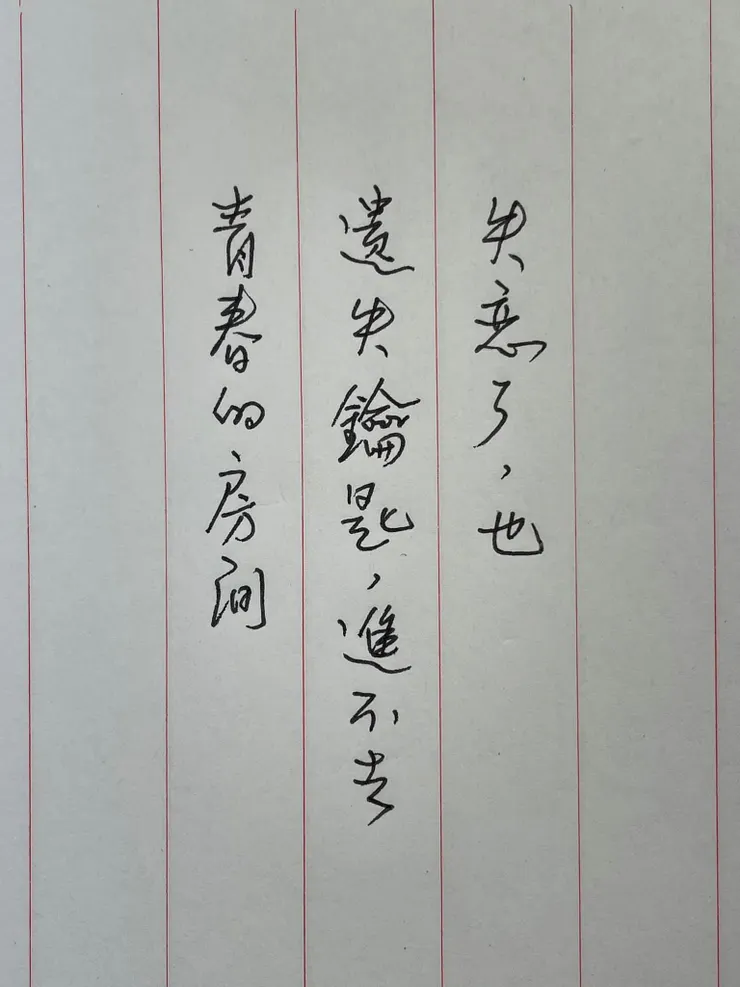 失恋了，也
遺失鑰匙，進不去
青春的房间